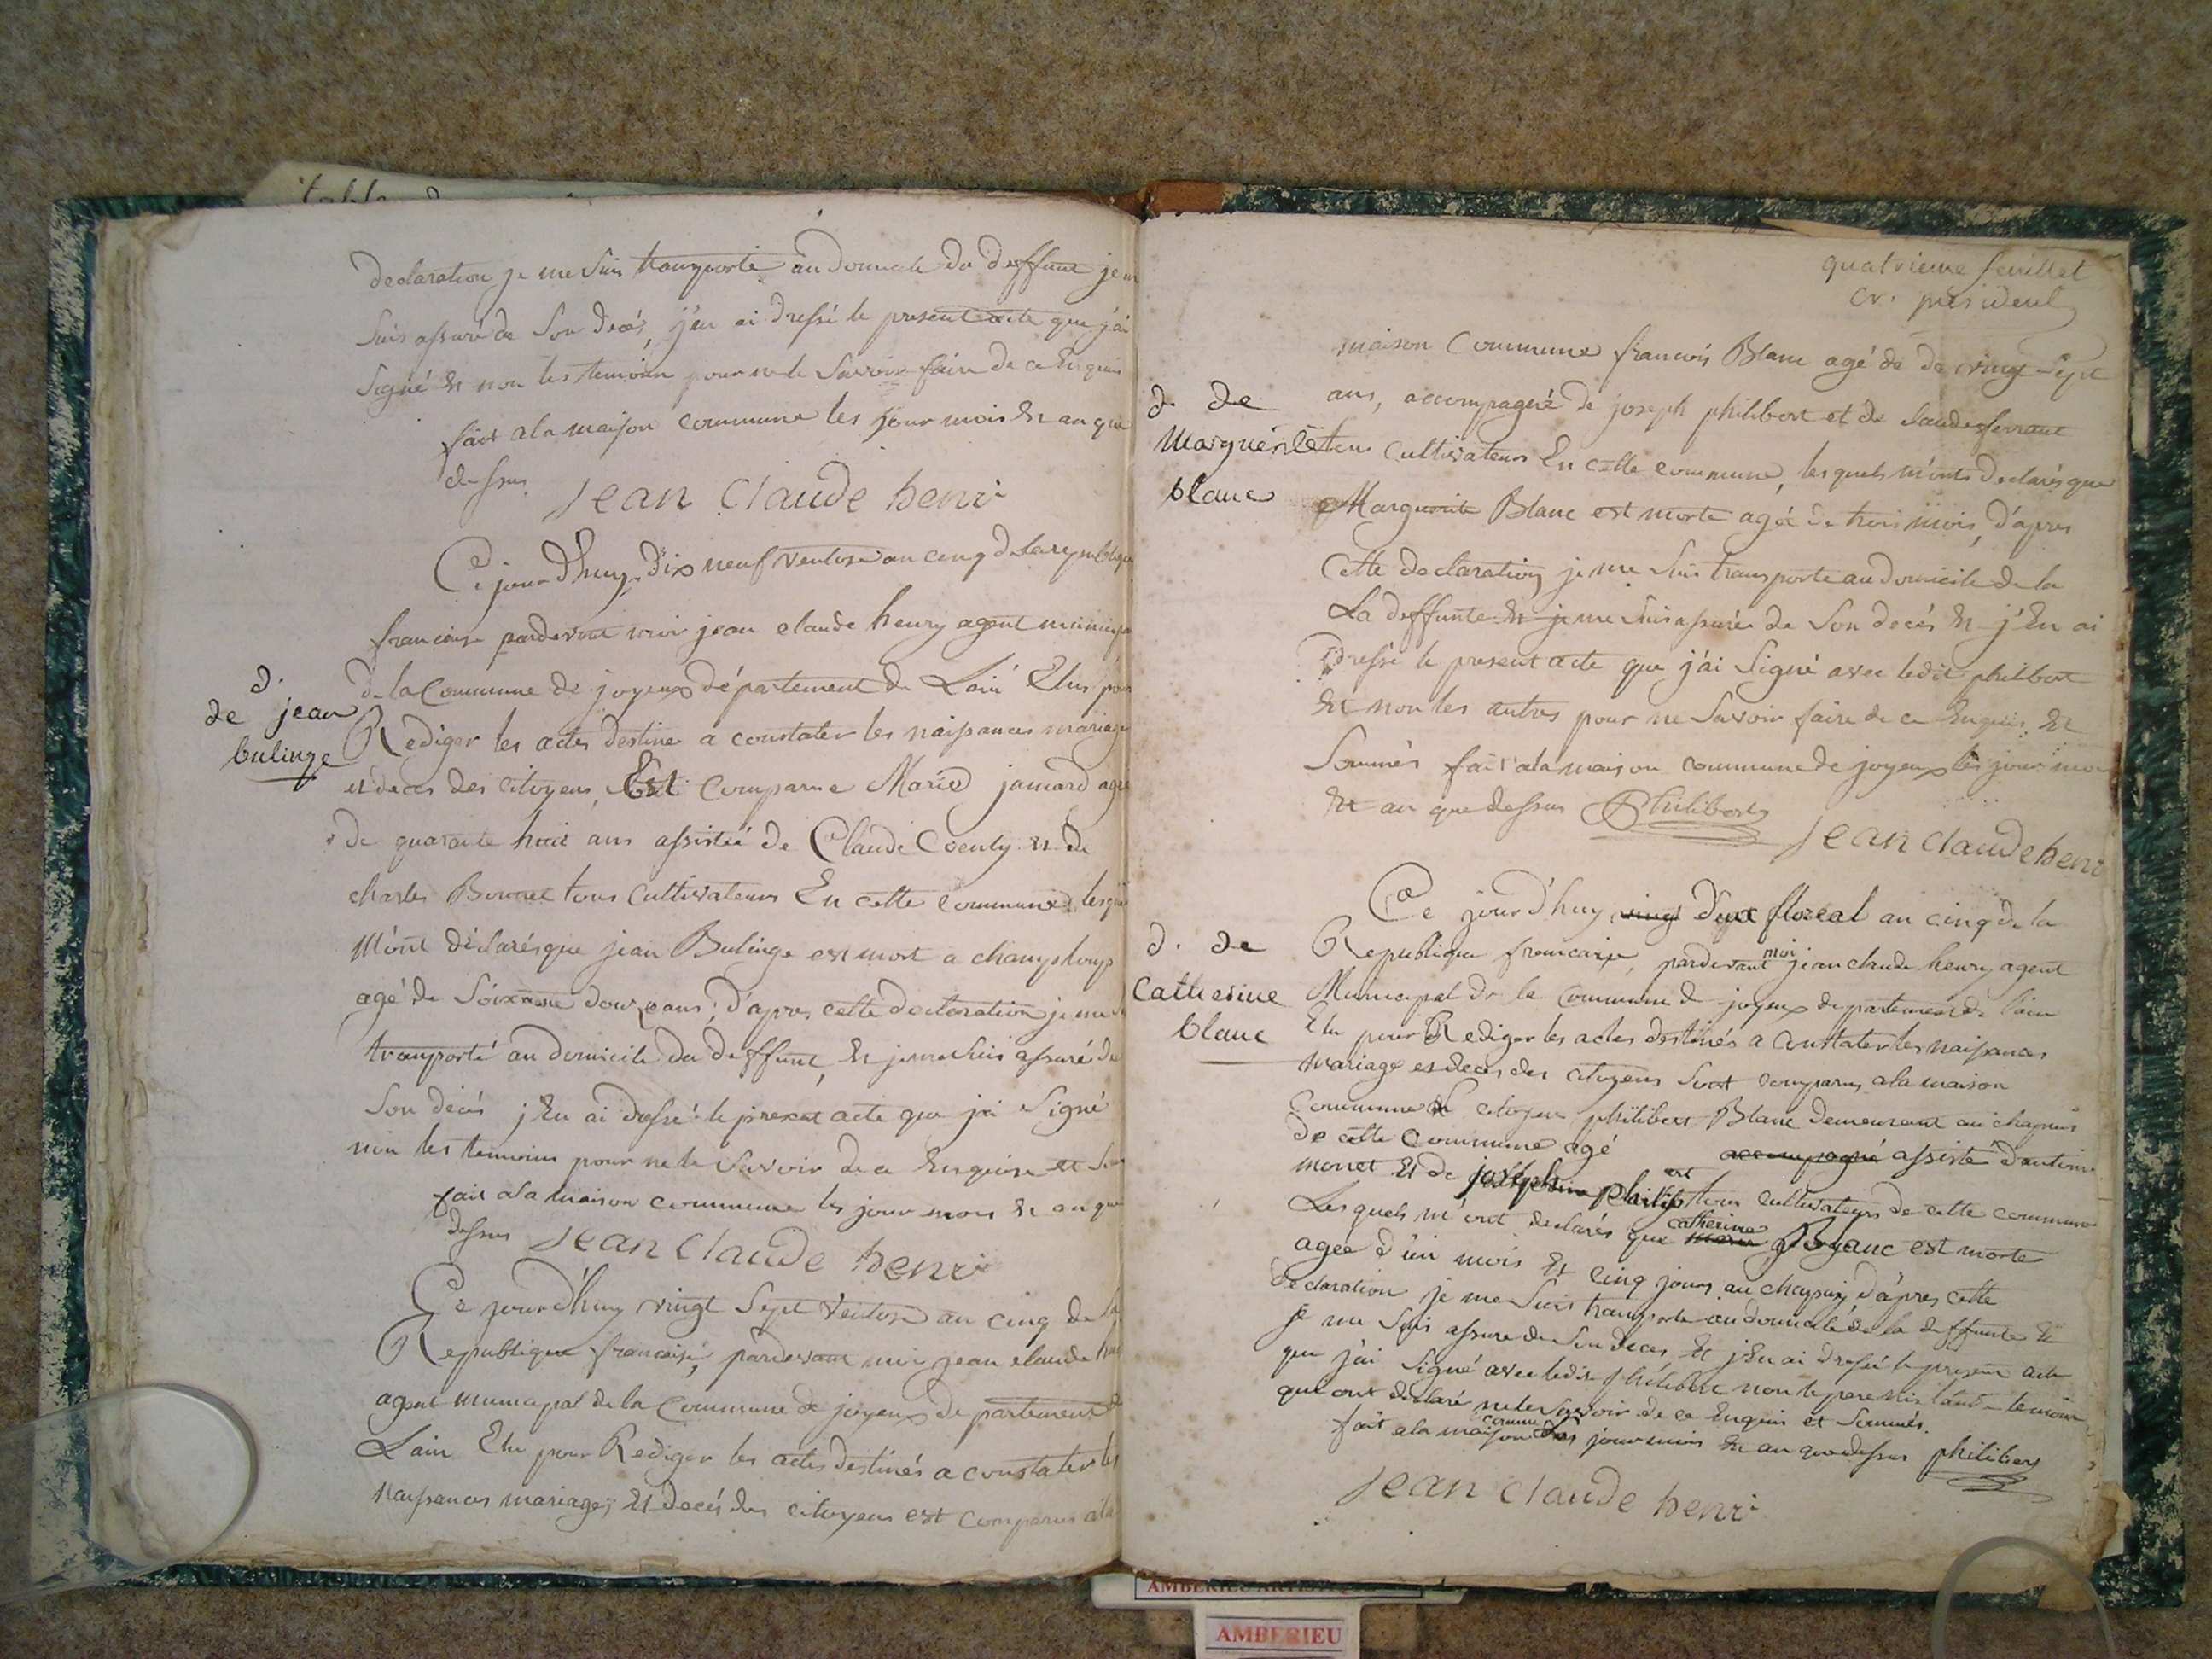 declaration je me suis transporté au domicile du deffunt je m
suis assuré de son decés, j'en ai dressé le present acte que j'ai
signé et non les temoins pour ne le savoir faire de ce enquis
fait a la maison commune les jour mois et an que
dessus
jean claude henri
Ce jourd'huy dix neuf ventose an cinq de la republique
francaise pardevant moi jean claude henry agent municipal
d.
de jean
bulinge
de la commune de joyeux département de Lain Elus pour
Rediger les actes destine a constater les naissances mariage
et deces des citoyens, Est comparue Marie jamard agée
de quarante huit ans assistée de Claude Coenty et de
charles Bonnet tous cultivateurs En cette commune lesquels
m'ont déclarés que jean Bulinge est mort a champloup
agé de soixante douze ans; d'apres cette declaration je me
transporté au domicile du deffunt, et je me suis assuré de
son decés j'En ai dressé le present acte que j'ai signé
non les temoins pour ne le savoir de ce Enquise et
fait a la maison commune les jour mois et an que
dessus jean claude henri
Ce jourd'huy vingt sept ventose an cinq de la
Republique francaise, pardevant moi jean claude
agent municipal de la commune de joyeux departement
Lain Elu pour Rediger les actes destinés a constater les
naissances mariages et decés des citoyens est comparus a la
quatrieme feuillet
président
maison Commune francois Blanc agé de de vingt sept
ans, accompagné de joseph philibert et de claude ferrant
d. de
Marguerite
blanc
tous cultivateurs En cette commune, les quels m'onts declarés que
Marguerite Blanc est morte agée de trois mois, d'apres
Cette declaration je me suis transporte au domicile de la
La deffunte et je me suis assurée de son decés et j'En ai
dressé le present acte que j'ai signé avec ledit philibert
Et non les autres pour ne savoir faire de ce Enquis et
Sommés fait a la maison commune de joyeux les jour mois
Et an que dessus Philibert
jean claude henri
Ce jourd'huy vingt deux floreal an cinq de la
d. de
Catherine
blanc
Republique francaise, pardevant moi jean claude henry agent
Municipal de la commune de joyeux departement de l'ain
Elu pour Rediger les actes destinés a constater les naissances
mariage et deces des citoyens sont comparus a la maison
commune le citoyen philibert Blanc demeurant au chapuis
de cette commune agé accompagné assisté d'antoine
monet et de joseph philibert tous cultivateurs de cette commune
Les quels m'ont declarés que catherine Blanc est morte
agée d'un mois et cinq jours au chapuis d'apres cette
declaration je me suis transporte au domicile de la deffunte et
je me suis assure de son deces, et j'En ai dressé le present acte
que j'ai signé avec ledit philibert non le pere tant temoins
qui ont declaré ne le savoir de ce Enquis et sommés.
fait a la maison commune les jour mois et an que dessus philibert
jean claude henri
AMBERIEU